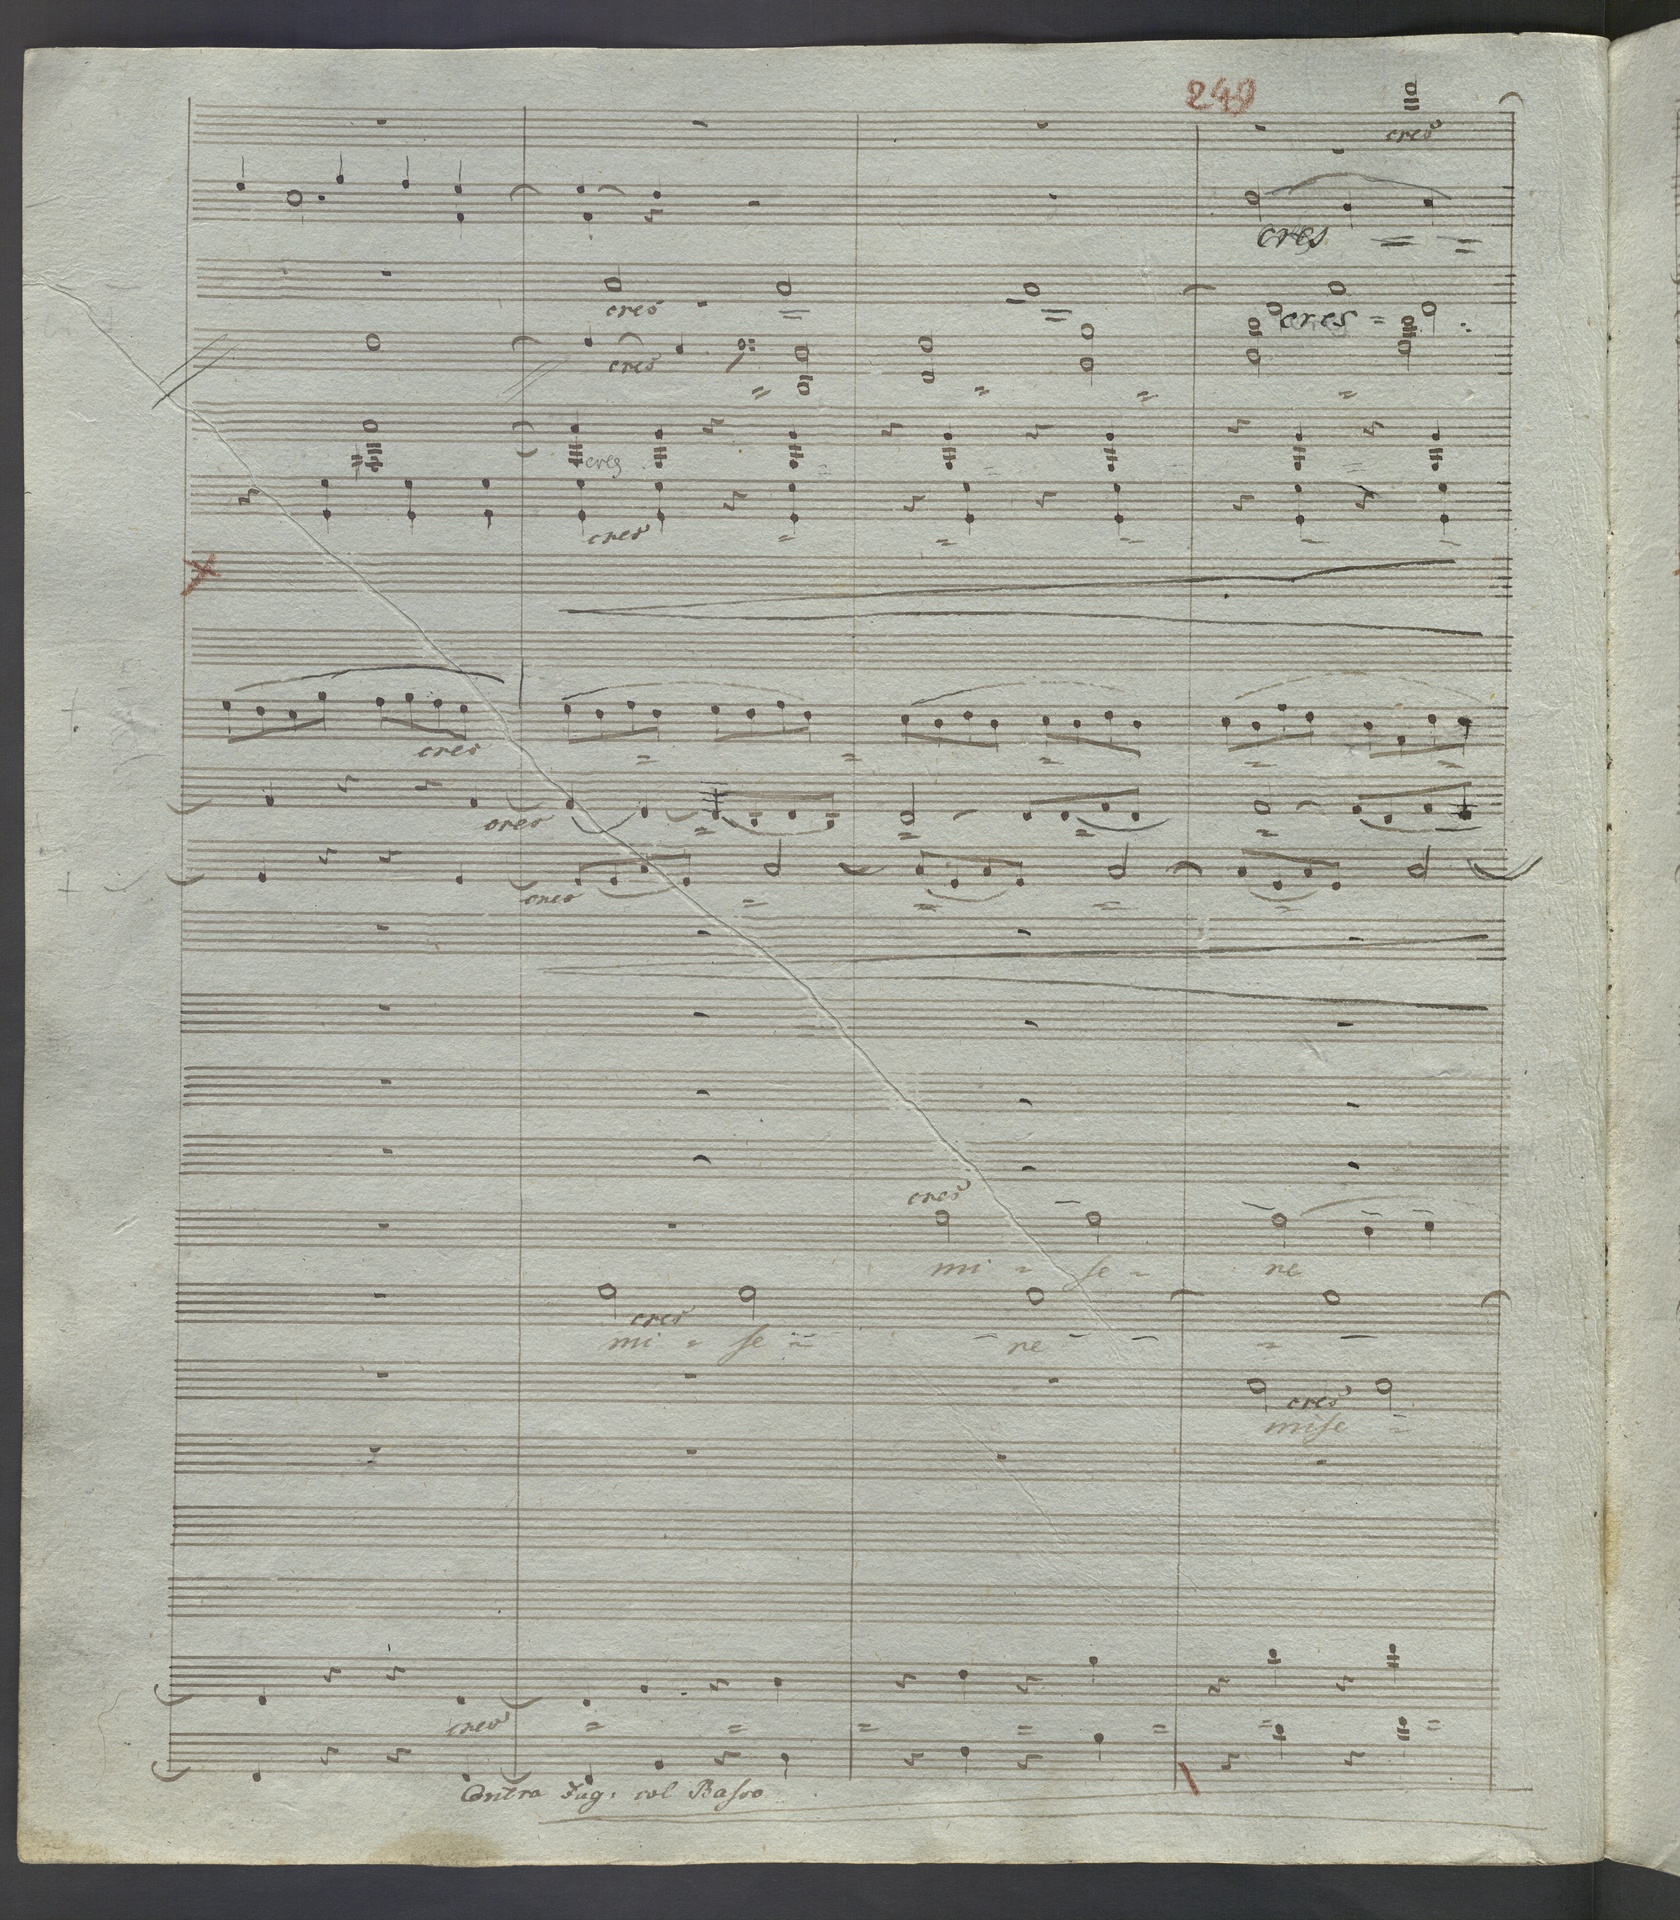 249
cres
cres = =
cres =
cres = cres =
cres = = = =
cres = = =
cres = = = =
cres = = = = =
cres = = = =
cres = = = =
cres
mi = se = ne
cres
mi = se = ne = =
cres
mise =
cres = = = = = = =
Contra Fag: col Basso